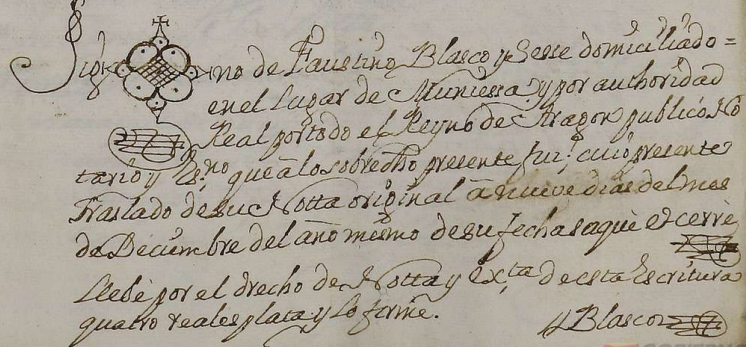 Sig no de Faustino Blasco y Sesse domiciliado =
en el Lugar de Muniessa, y por authoridad
Real por todo el Reyno de Aragon publico No
tario y Es.no que â lo sobredho presente fui; cuio presente
Traslado de su Notta original â nueve dias del mes
de Deciembre del año mismo de su fecha saquè et cerrè
Llebè por el drecho de Notta y ex.ta de esta Escritura
quatro reales plata y lo firmè.
Blasco